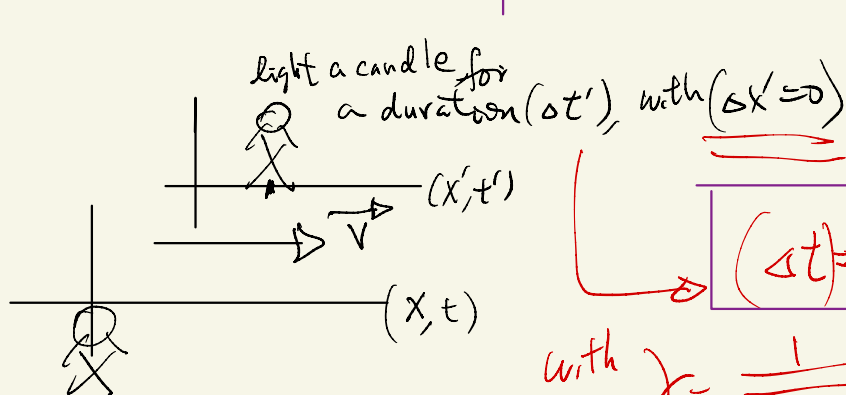 light a candle for
a duration (Δt'), with (Δx'=0)
(x',t')
V
(Δt)=
(x,t)
with γ= 1